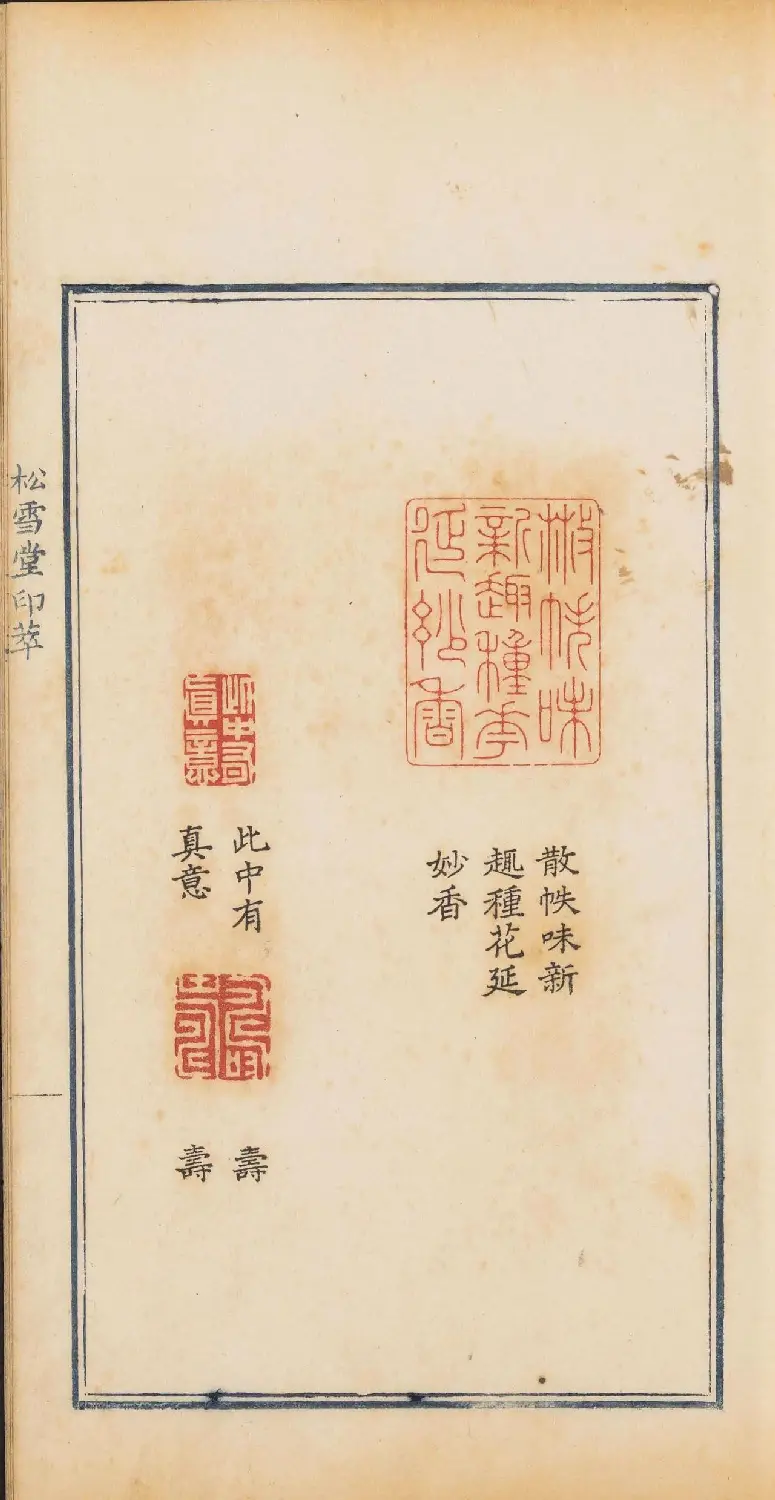 散帙味新
趣種花延
妙香
散帙味新
趣種花延
妙香
此中有
真意
此中有
真意
壽
壽
松雪堂印萃